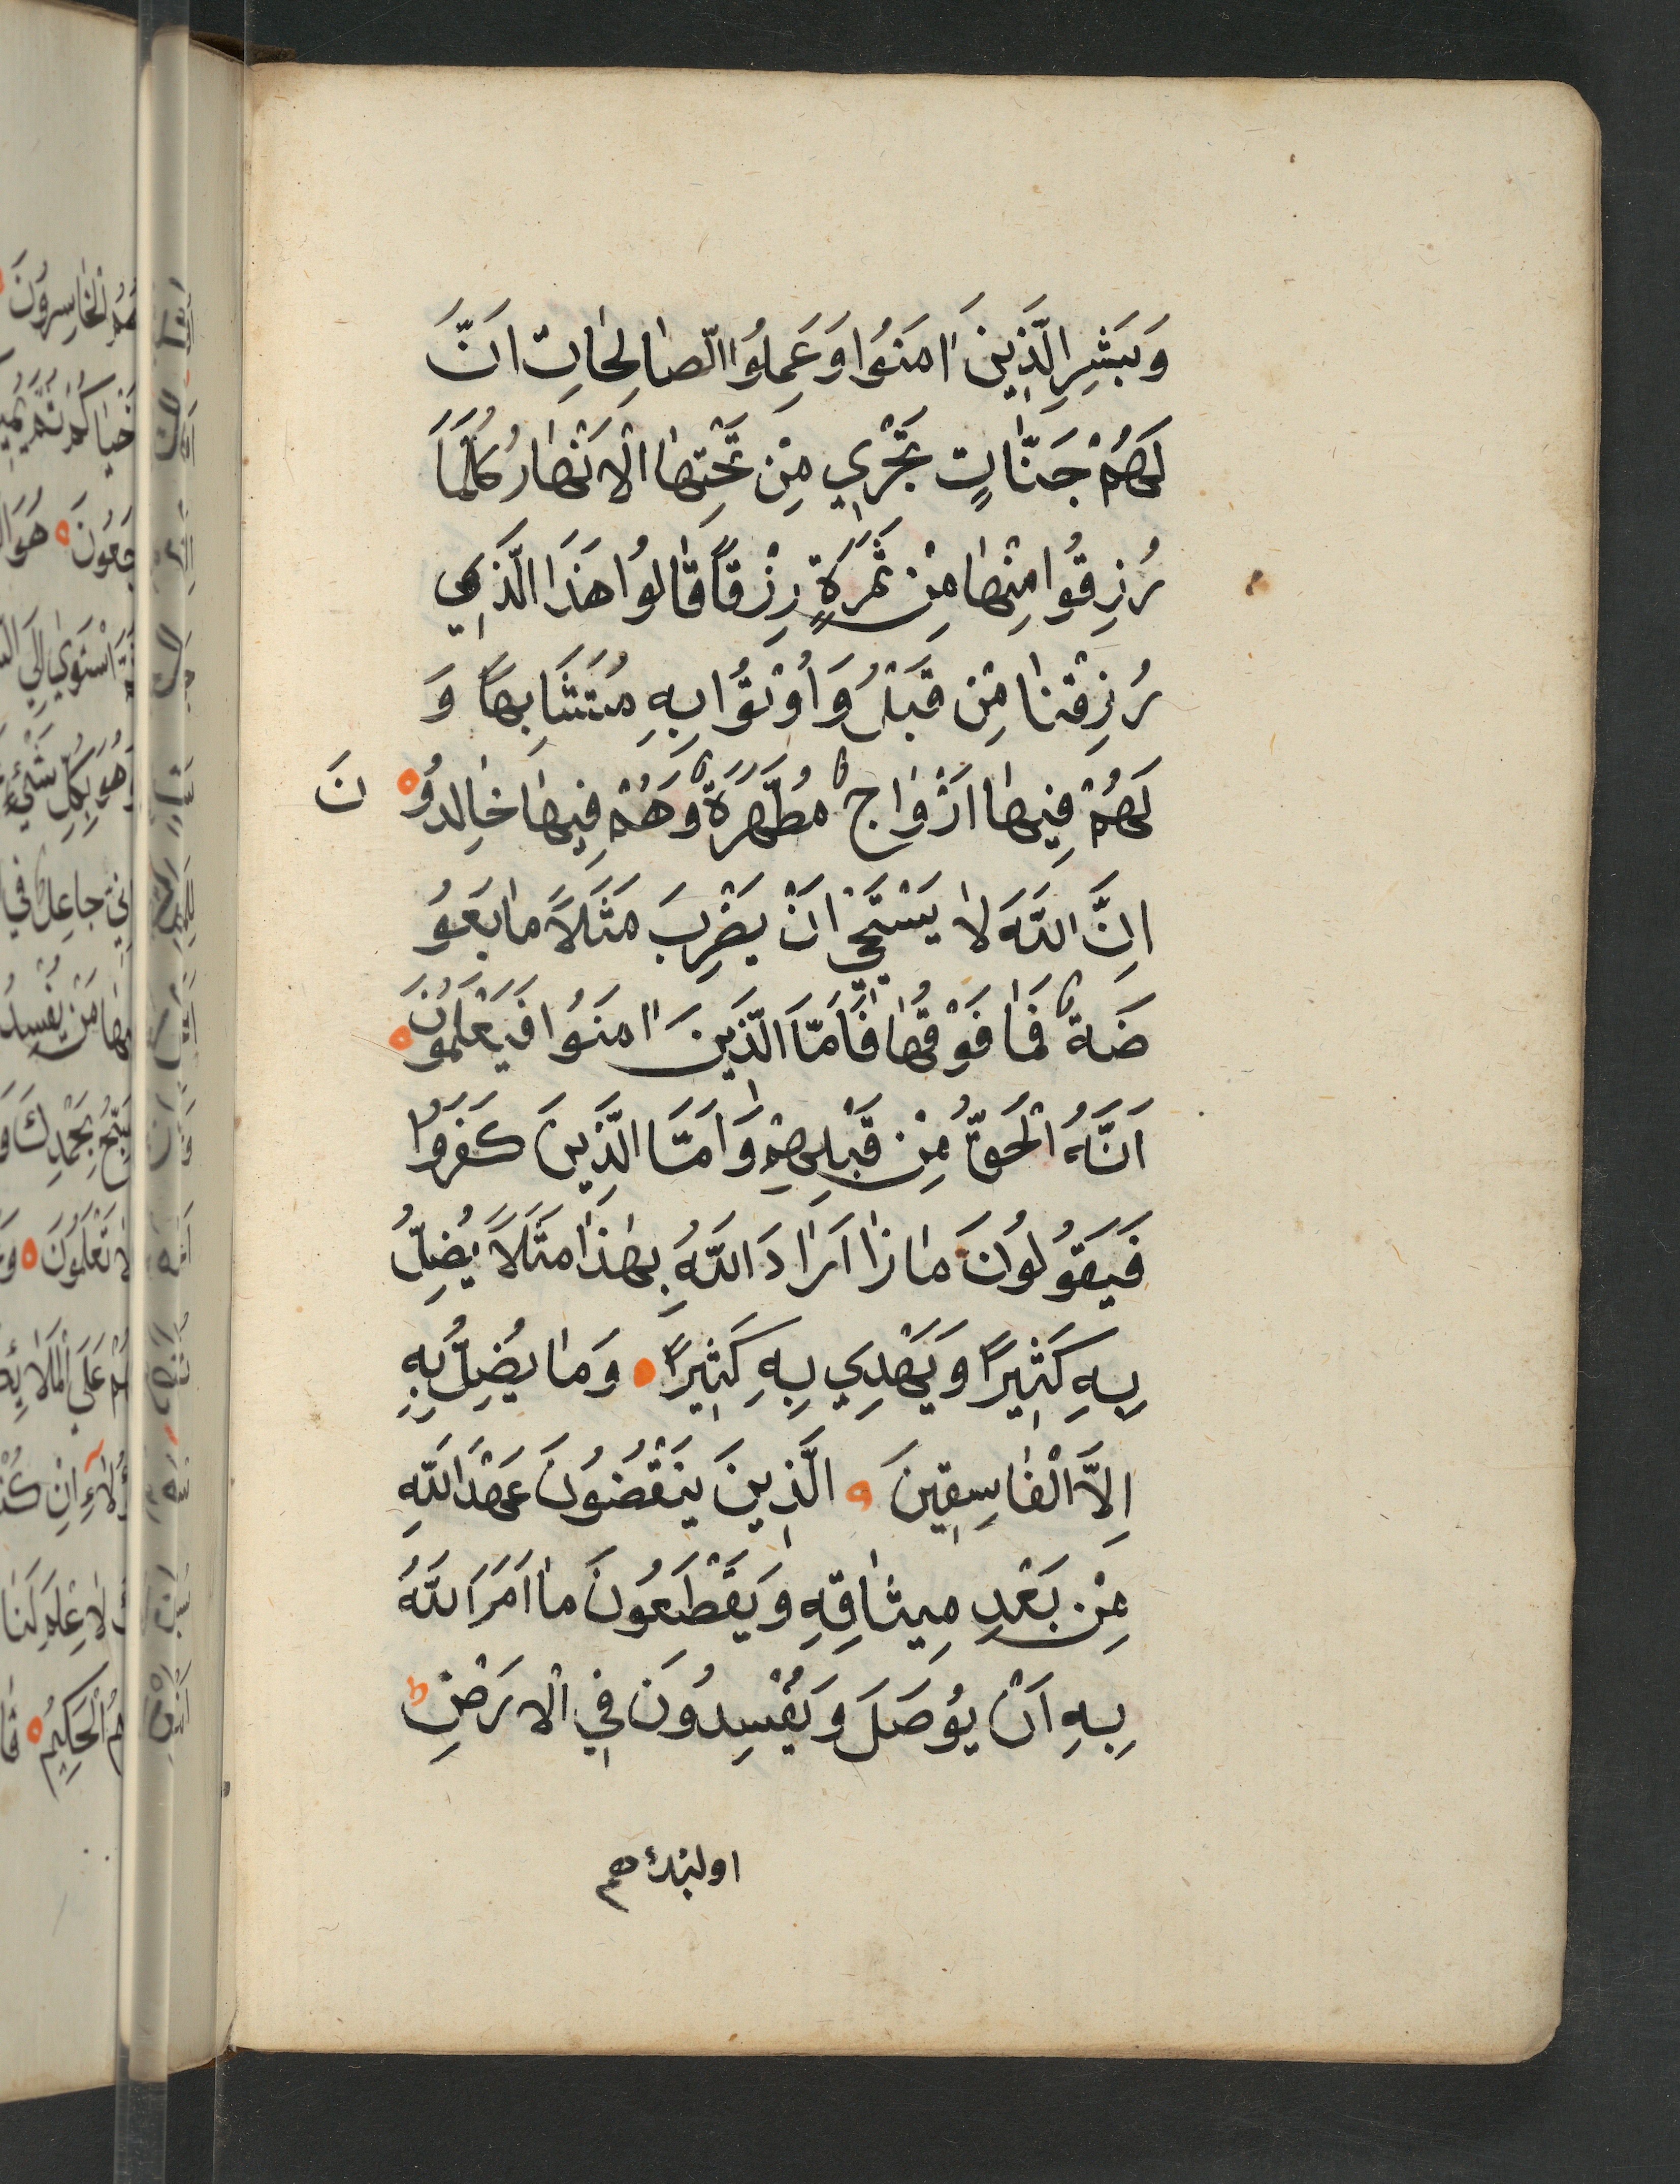 وَبَشِرِ الَّذِينَ اٰمَنُوا وَعَمِلُوا الصّٰالِحٰاتِ اَنَّ
لَهُمْ جَنّٰاتٍ تَجْرِي مِنْ تَحْتِهٰا الْاَنْهٰارُ كُلَّمَا
رُزِقُوا مِنْهٰا مِنْ ثَمَرَةٍ رِزْقاً قٰالُوا هَذَا الَّذِي
رُزِقْنٰا مِنْ قَبْلُ وَاُوْتُوُا بِهِ مُتَشَابِهاً وَ
لَهُمْ فِيهٰا اَزْوٰاجٌ مُطَهَّرَةٌ وَهُمْ فِيهٰا خٰالِدُو نَ
اِنَّ اللَّهَ لاٰ يَسْتَحْيِي اَنْ يَضْرِبَ مَثَلاً مٰا بَعَوُ
ضَةٌ فَمٰا فَوْقُهٰا فَاَمَّا الَّذِينَ اٰمَنُوا فَيَعْلَمُونَ
اَنَّهُ الْحَقُّ مِنْ قَبْلِهِمْ وَاَمَّا الَّذِينَ كَفَرَوُا
فَيَقُولُونَ مٰاذٰا اَرٰادَ اللَّهُ بِهٰذٰا مَثَلاً يُضِلُّ
بِهِ كَثِيرًا وَيَهْدِي بِهِ كَثِيرًا وَمٰا يُضِلُّ بِهِ
اِلَّا الْفٰاسِقِينَ الَّذِينَ يَنْقُضُونَ عَهْدَ اللَّهِ
مِنْ بَعْدِ مِيثٰاقِهِ وَيَقْطَعُونَ مٰا اَمَرَ اللَّهُ
بِهِ اَنْ يُوصَلَ وَيُفْسِدُونَ فِي الْاَرْضِ
اولئك هم